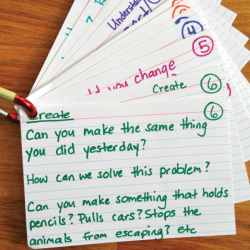 Understand
④
⑤
you change
Create ⑥
Create ⑥
Can you make the same thing
you did yesterday?
How can we solve this problem?
Can you make something that holds
pencils? Pulls cars? Stops the
animals from escaping? etc